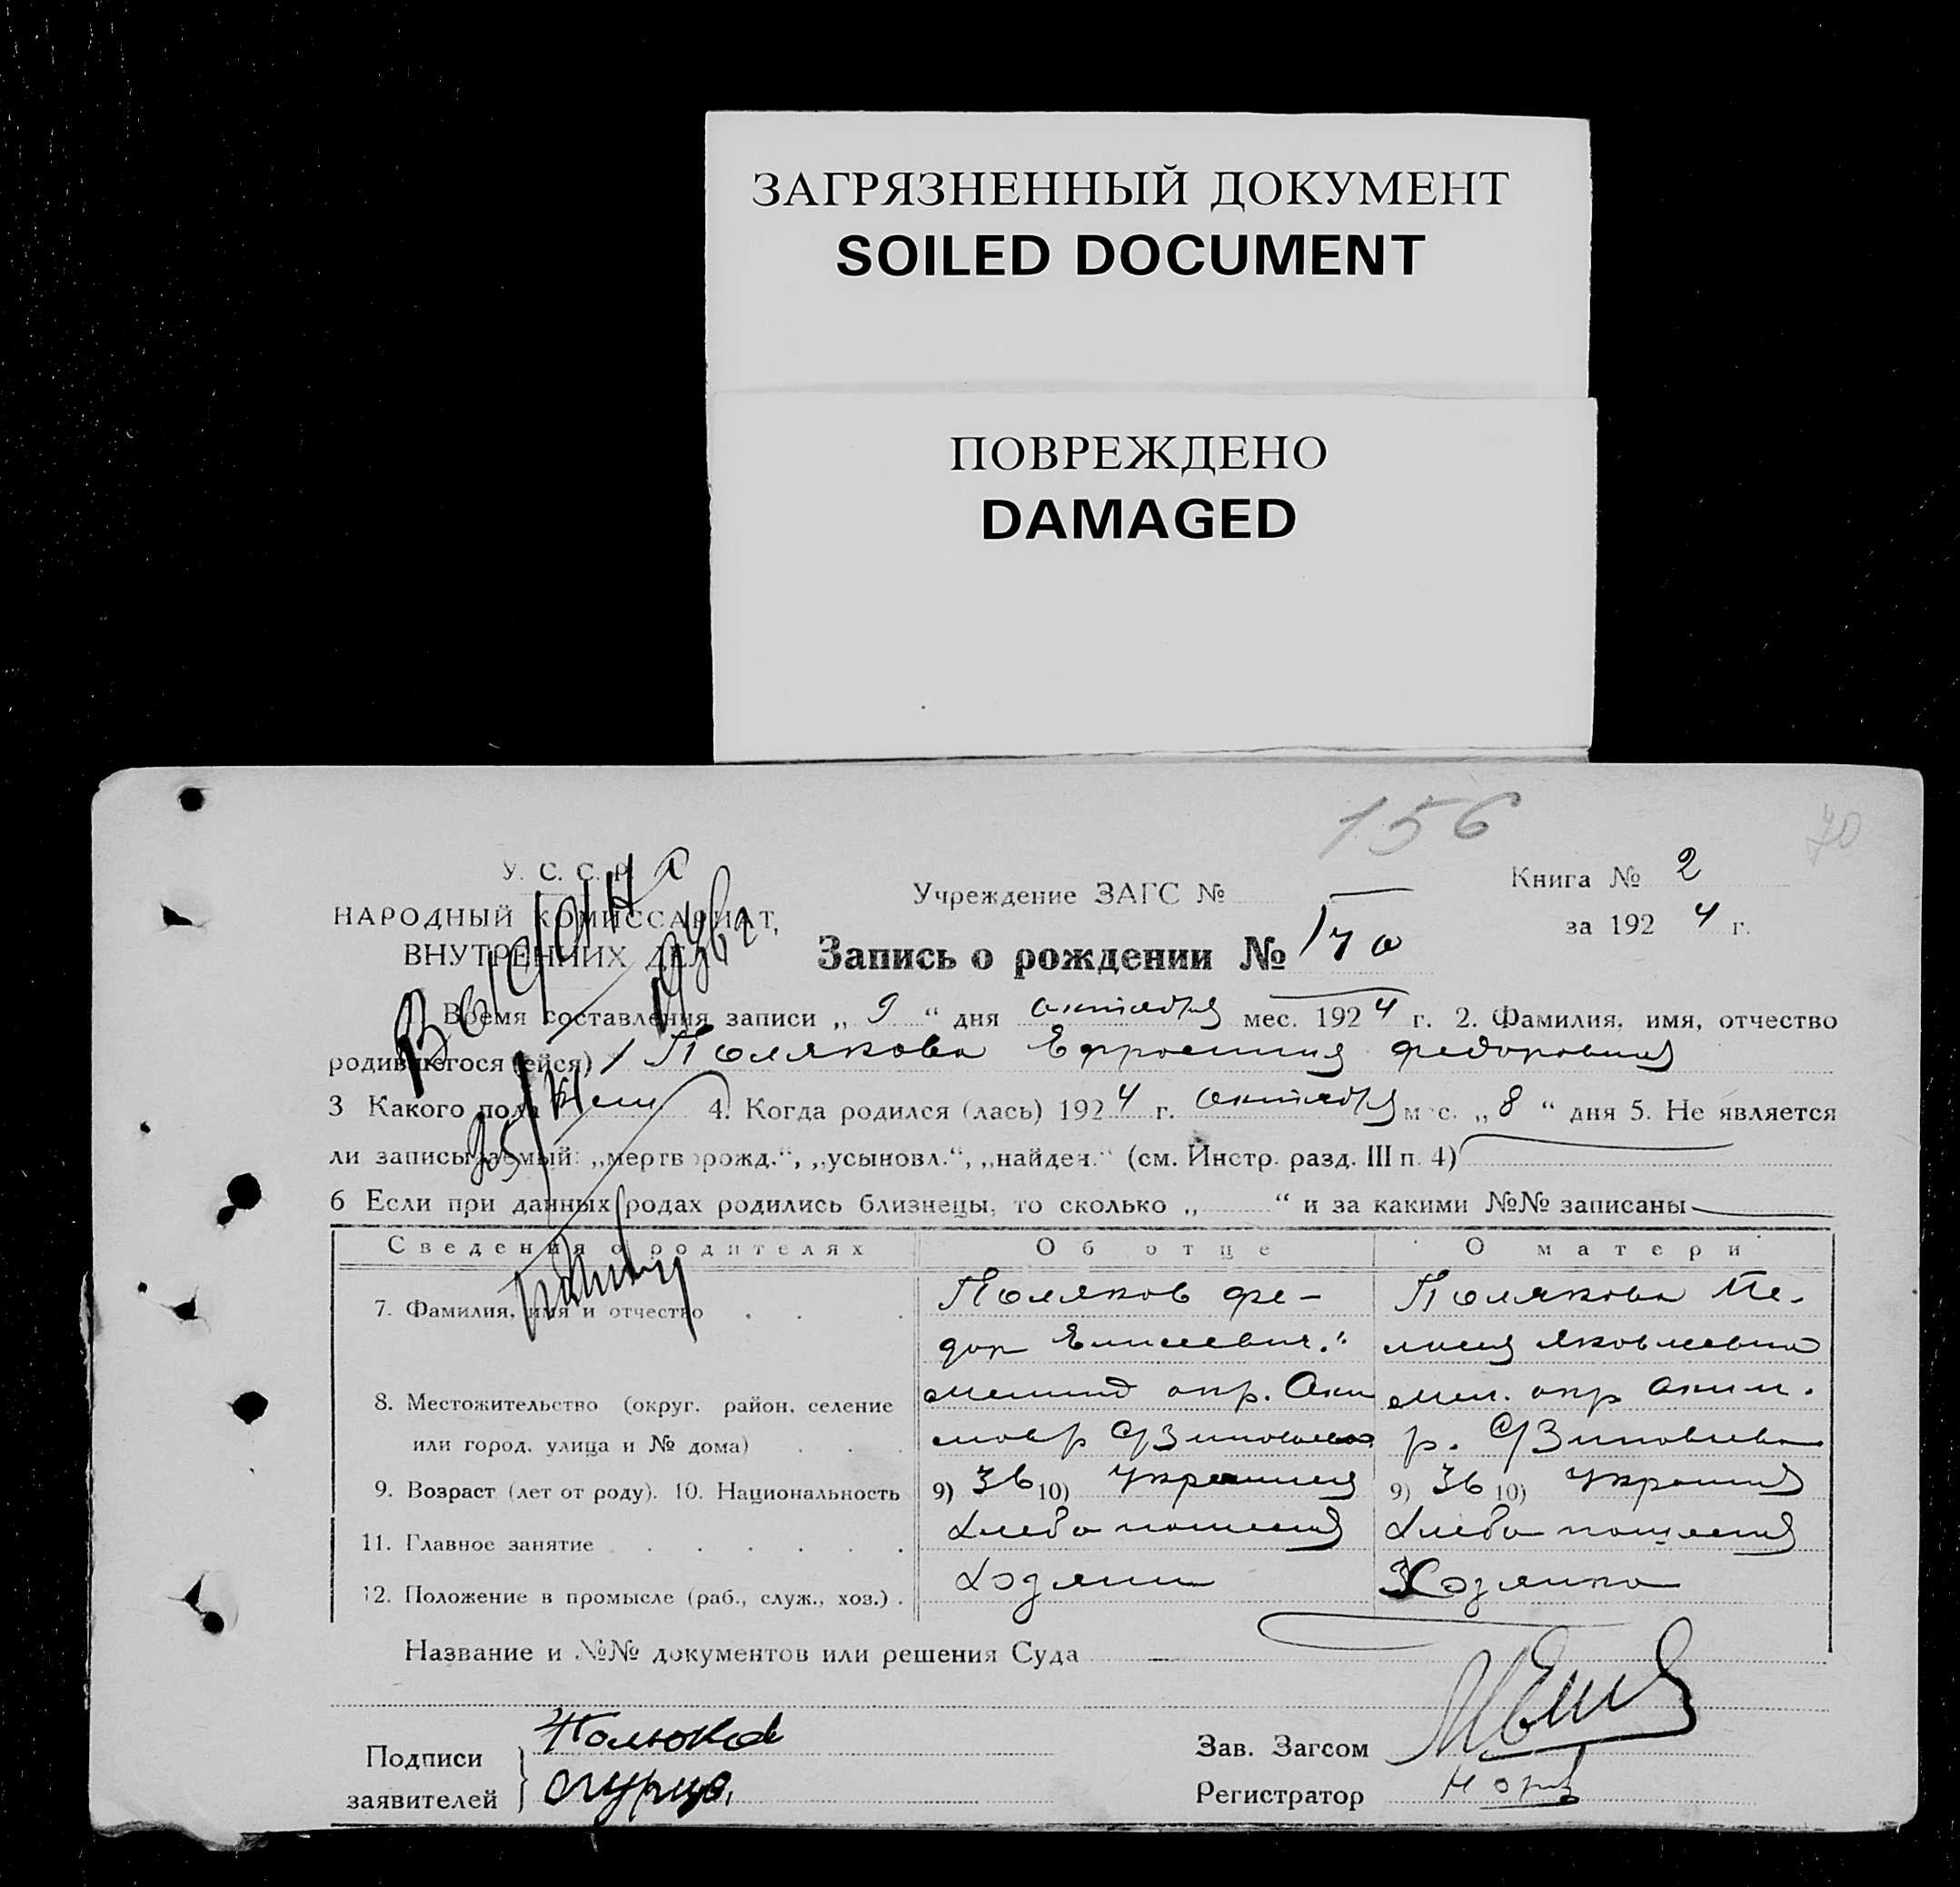 ЗАГРЯЗНЕННЫЙ ДОКУМЕНТ
SOILED DOCUMENT
ПОВРЕЖДЕНО
DAMAGED
156
70
У. С. С. Р.
НАРОДНЫЙ КОМИССАРИАТ,
ВНУТРЕННИХ ДЕЛ
Учреждение ЗАГС № —
Книга № 2
за 1924 г.
Запись о рождении № 170
Время составления записи „ 9 “ дня октября мес. 1924 г. 2. Фамилия, имя, отчество
родившегося (ейся) Полякова Ефросиния Федоровна
3 Какого пола жен 4. Когда родился (лась) 1924 г. октября мес. „ 8 “ дня 5. Не является
ли записываемый: „мертворожд.“, „усыновл.“, „найден.“ (см. Инстр. разд. III п. 4)
6 Если при данных родах родились близнецы, то сколько „ “ и за какими №№ записаны —
Сведения о родителях Об отце О матери
7. Фамилия, имя и отчество Поляков Фе- Полякова Ме-
дор Елисеевич. Яковлевна
8. Местожительство (округ. район. селение окр. Аки мел. окр Аким.
или город. улица и № дома) р. с/Зиновьево
9. Возраст (лет от роду). 10. Национальность 9) 36 10) 9) 36 10)
11. Главное занятие Хлебопашец
12. Положение в промысле (раб., служ., хоз.) Хозяин Хозяйка
Название и №№ документов или решения Суда —
Подписи
заявителей
Зав. Загсом
Регистратор